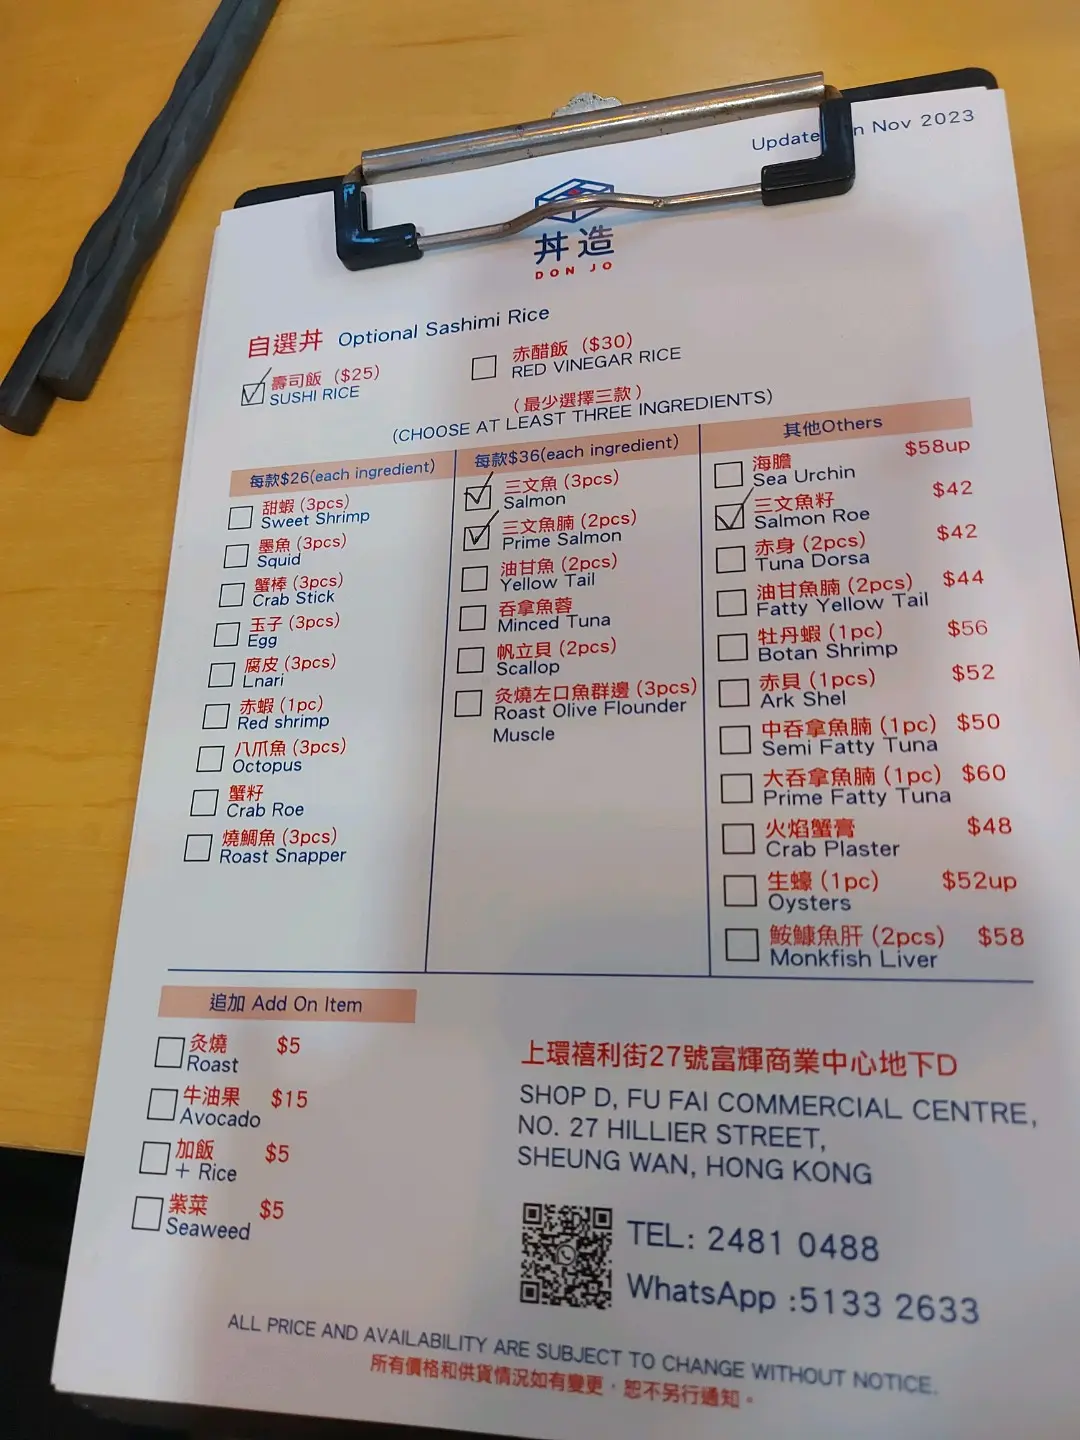 Update n Nov 2023
丼造
DON JO
自選丼 Optional Sashimi Rice
壽司飯 ($25)
SUSHI RICE
赤醋飯 ($30)
RED VINEGAR RICE
(最少選擇三款)
(CHOOSE AT LEAST THREE INGREDIENTS)
每款$26(each ingredient)
甜蝦 (3pcs)
Sweet Shrimp
墨魚 (3pcs)
Squid
蟹棒 (3pcs)
Crab Stick
玉子 (3pcs)
Egg
腐皮 (3pcs)
Lnari
赤蝦 (1pc)
Red shrimp
八爪魚 (3pcs)
Octopus
蟹籽
Crab Roe
燒鯛魚 (3pcs)
Roast Snapper
每款$36(each ingredient)
三文魚 (3pcs)
Salmon
三文魚腩 (2pcs)
Prime Salmon
油甘魚 (2pcs)
Yellow Tail
吞拿魚蓉
Minced Tuna
帆立貝 (2pcs)
Scallop
灸燒左口魚群邊 (3pcs)
Roast Olive Flounder
Muscle
其他Others
海膽 $58up
Sea Urchin
三文魚籽 $42
Salmon Roe
赤身 (2pcs) $42
Tuna Dorsa
油甘魚腩 (2pcs) $44
Fatty Yellow Tail
牡丹蝦 (1pc) $56
Botan Shrimp
赤貝 (1pcs) $52
Ark Shel
中吞拿魚腩 (1pc) $50
Semi Fatty Tuna
大吞拿魚腩 (1pc) $60
Prime Fatty Tuna
火焰蟹膏 $48
Crab Plaster
生蠔 (1pc) $52up
Oysters
鮟鱇魚肝 (2pcs) $58
Monkfish Liver
追加 Add On Item
灸燒 $5
Roast
牛油果 $15
Avocado
加飯 $5
+ Rice
紫菜 $5
Seaweed
上環禧利街27號富輝商業中心地下D
SHOP D, FU FAI COMMERCIAL CENTRE,
NO. 27 HILLIER STREET,
SHEUNG WAN, HONG KONG
TEL: 2481 0488
WhatsApp :5133 2633
ALL PRICE AND AVAILABILITY ARE SUBJECT TO CHANGE WITHOUT NOTICE.
所有價格和供貨情況如有變更，恕不另行通知。